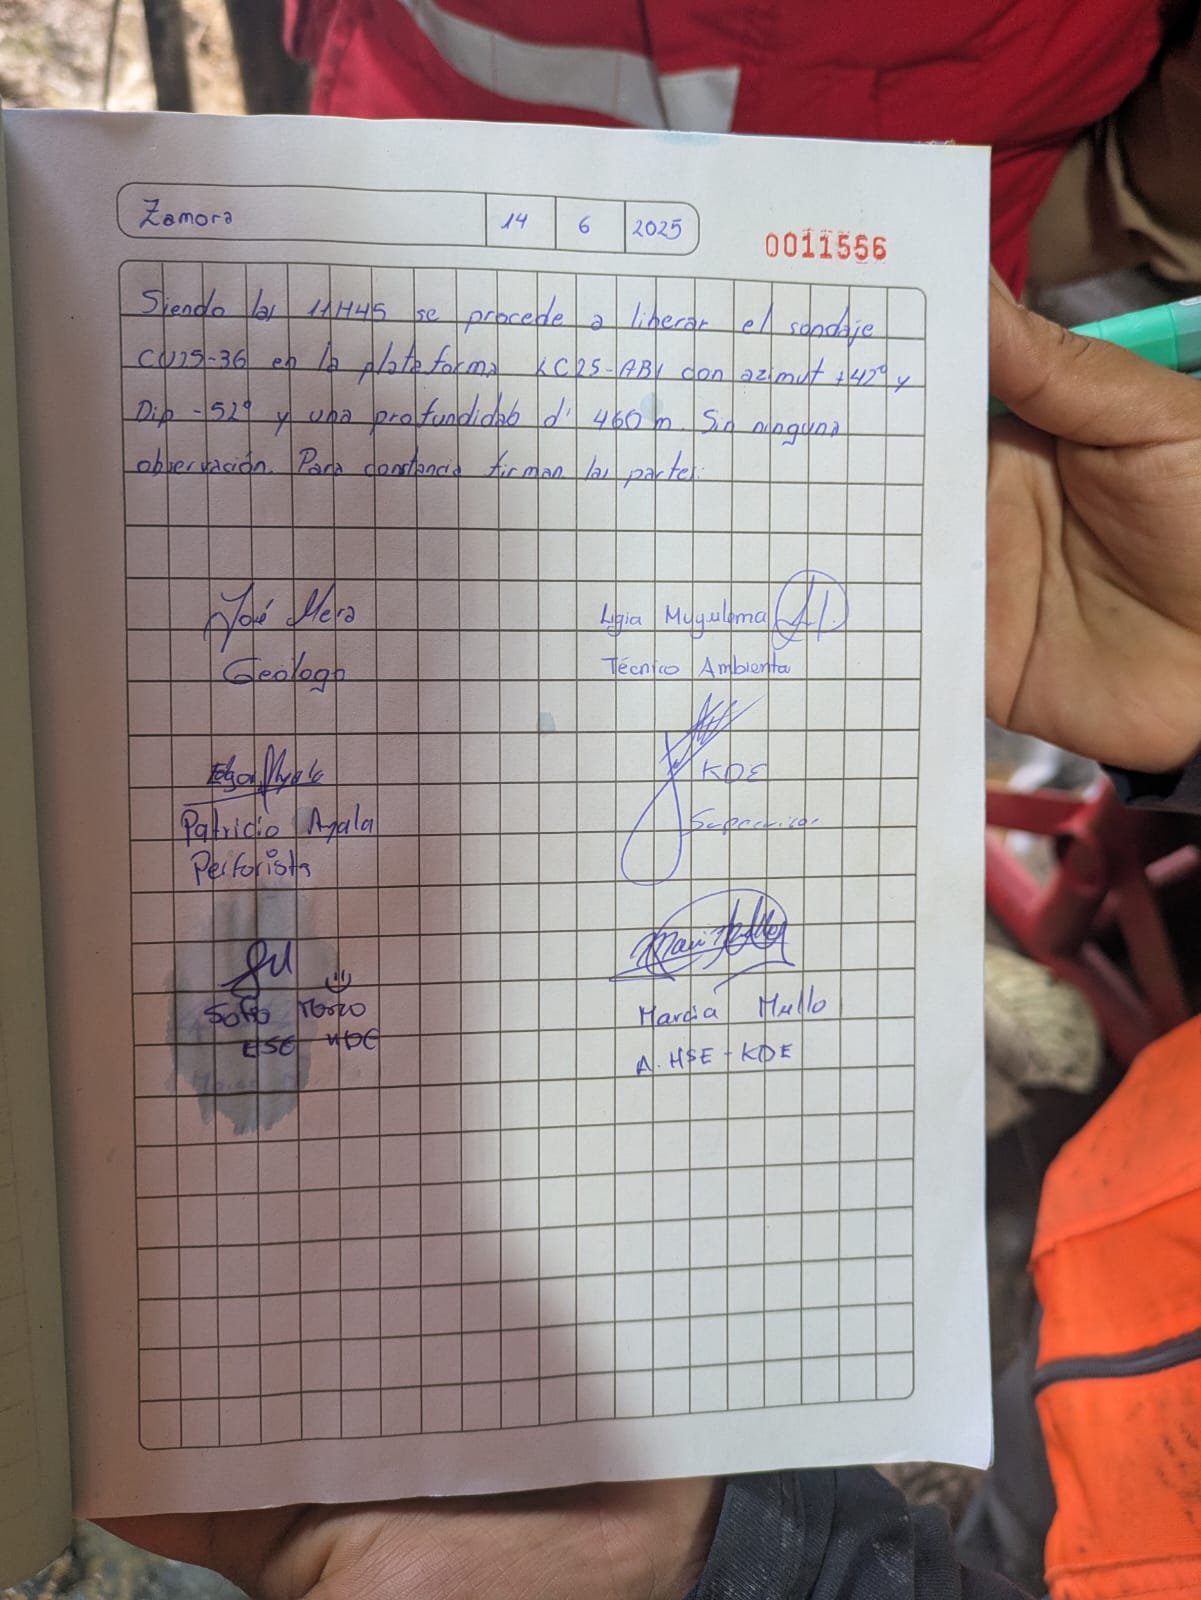 Zamora 14 6 2025
0011556
Siendo las 11H45 se procede a liberar el sondaje
CU25-36 en la plataforma LC25-AB1 con azimut +42° y
Dip -52° y una profundidad d' 460 m. Sin ninguna
observación. Para constancia firman las partes.
José Mera
Geólogo
Ligia Muyulema
Técnico Ambienta
KDE
Supervisor
Patricio Ayala
Perforista
HSE KDE
Marcia Mullo
A. HSE - KDE